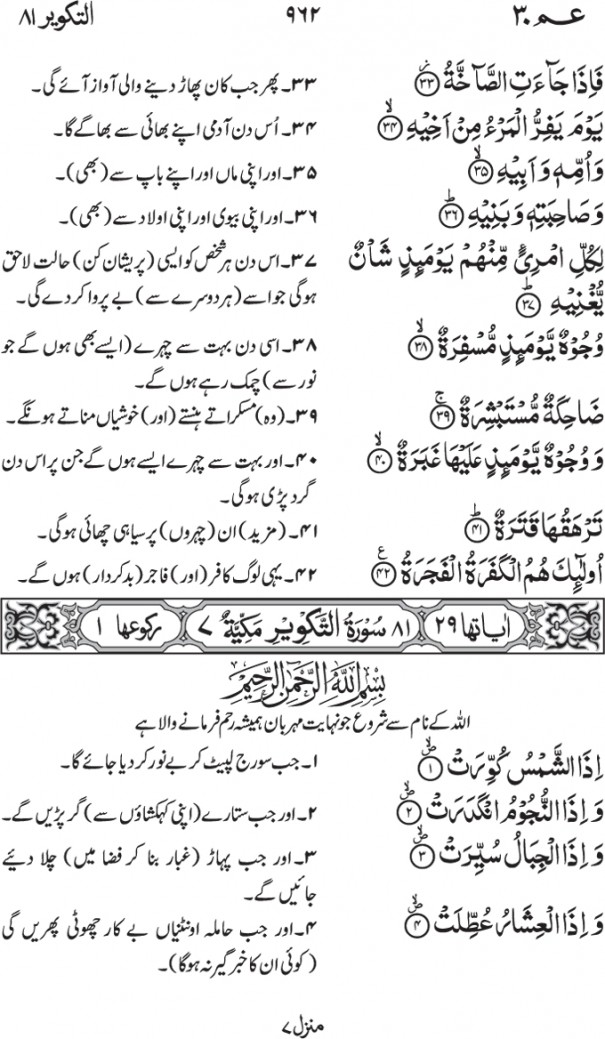 عـــم ٣٠ ٩٦٢ التکویر ٨١
فَاِذَا جَآءَتِ الصَّآخَّةُ ﴿٣٣﴾ ٣٣۔ پھر جب کان پھاڑ دینے والی آواز آئے گی۔
یَوْمَ یَفِرُّ الْمَرْءُ مِنْ اَخِیْهِ ﴿٣٤﴾ ٣٤۔ اُس دن آدمی اپنے بھائی سے بھاگے گا۔
وَ اُمِّهٖ وَ اَبِیْهِ ﴿٣٥﴾ ٣٥۔ اور اپنی ماں اور اپنے باپ سے (بھی)۔
وَ صَاحِبَتِهٖ وَ بَنِیْهِ ﴿٣٦﴾ ٣٦۔ اور اپنی بیوی اور اپنی اولاد سے (بھی)۔
لِكُلِّ امْرِئٍ مِّنْهُمْ یَوْمَىِٕذٍ شَاْنٌ ٣٧۔ اس دن ہر شخص کو ایسی (پریشان کن) حالت لاحق
یُّغْنِیْهِ ﴿٣٧﴾ ہوگی جو اسے (ہر دوسرے سے) بے پروا کر دے گی۔
وُجُوْهٌ یَّوْمَىِٕذٍ مُّسْفِرَةٌ ﴿٣٨﴾ ٣٨۔ اسی دن بہت سے چہرے (ایسے بھی ہوں گے جو
نور سے) چمک رہے ہوں گے۔
ضَاحِكَةٌ مُّسْتَبْشِرَةٌ ﴿٣٩﴾ ٣٩۔ (وہ) مسکراتے ہنستے (اور) خوشیاں مناتے ہونگے۔
وَ وُجُوْهٌ یَّوْمَىِٕذٍ عَلَیْهَا غَبَرَةٌ ﴿٤٠﴾ ٤٠۔ اور بہت سے چہرے ایسے ہوں گے جن پر اس دن
گرد پڑی ہوگی۔
تَرْهَقُهَا قَتَرَةٌ ﴿٤١﴾ ٤١۔ (مزید) ان (چہروں) پر سیاہی چھائی ہوگی۔
اُولٰٓىِٕكَ هُمُ الْكَفَرَةُ الْفَجَرَةُ ﴿٤٢﴾ ٤٢۔ یہی لوگ کافر (اور) فاجر (بدکردار) ہوں گے۔
اٰیاتها ٢٩ ٨١ سُوْرَةُ التَّكْوِیْرِ مَكِّیَّةٌ ٧ رکوعها ١
بِسْمِ اللّٰهِ الرَّحْمٰنِ الرَّحِیْمِ
اللہ کے نام سے شروع جو نہایت مہربان ہمیشہ رحم فرمانے والا ہے
اِذَا الشَّمْسُ كُوِّرَتْ ﴿١﴾ ١۔ جب سورج لپیٹ کر بے نور کر دیا جائے گا۔
وَ اِذَا النُّجُوْمُ انْكَدَرَتْ ﴿٢﴾ ٢۔ اور جب ستارے (اپنی کہکشاؤں سے) گر پڑیں گے۔
وَ اِذَا الْجِبَالُ سُیِّرَتْ ﴿٣﴾ ٣۔ اور جب پہاڑ (غبار بنا کر فضا میں) چلا دیئے
جائیں گے۔
وَ اِذَا الْعِشَارُ عُطِّلَتْ ﴿٤﴾ ٤۔ اور جب حاملہ اونٹنیاں بے کار چھوٹی پھریں گی
(کوئی ان کا خبر گیر نہ ہوگا)۔
منزل ٧